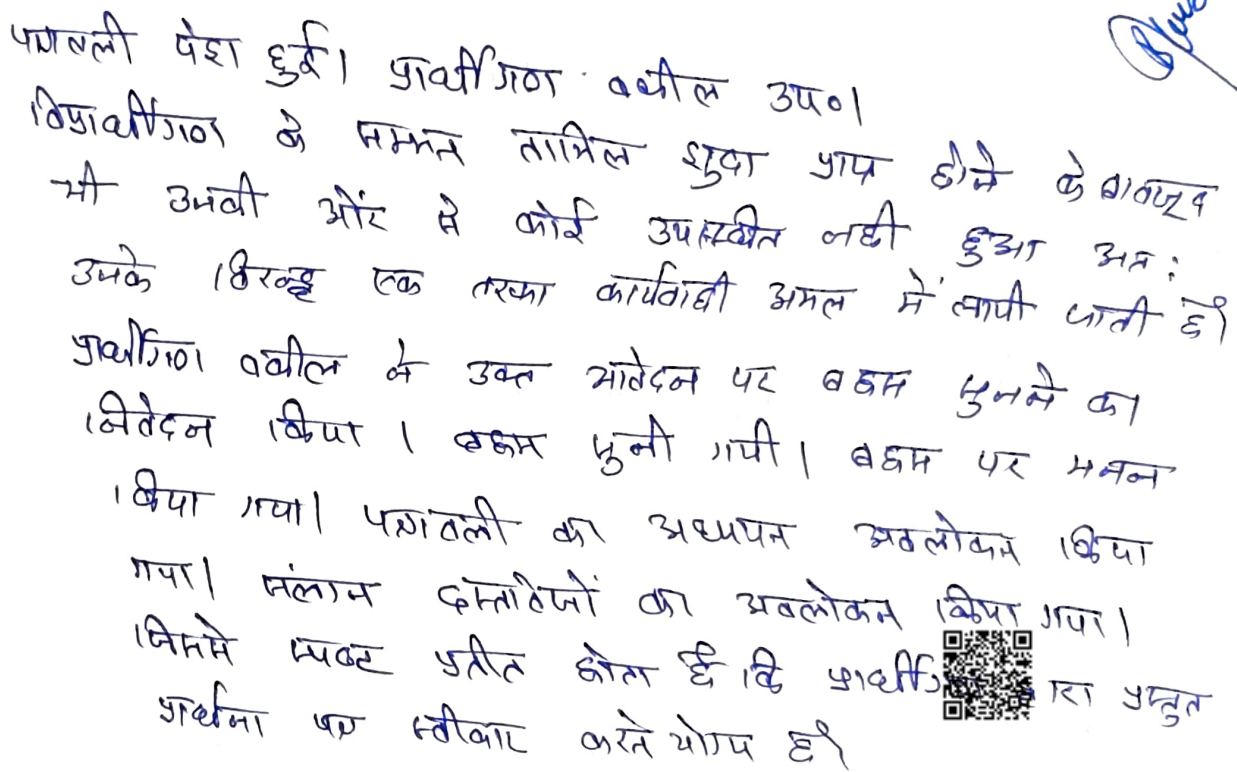 पत्रावली पेश हुई। प्रार्थीगण वकील उप०।
विप्रार्थीगण के सम्मन तामिल शुदा प्राप्त होने के बावजूद
भी उनकी ओर से कोई उपस्थीत नही हुआ अतः
उनके विरुद्ध एक तरफा कार्यवाही अमल में लायी जाती है।
प्रार्थीगण वकील ने उक्त आवेदन पर बहस सुनने का
निवेदन किया। बहस सुनी गयी। बहस पर मनन
किया गया। पत्रावली का अध्ययन अवलोकन किया
गया। संलग्न दस्तावेजों का अवलोकन किया गया।
जिससे स्पष्ट प्रतीत होता है कि प्रस्तुत
प्रार्थना पत्र स्वीकार करने योग्य है।